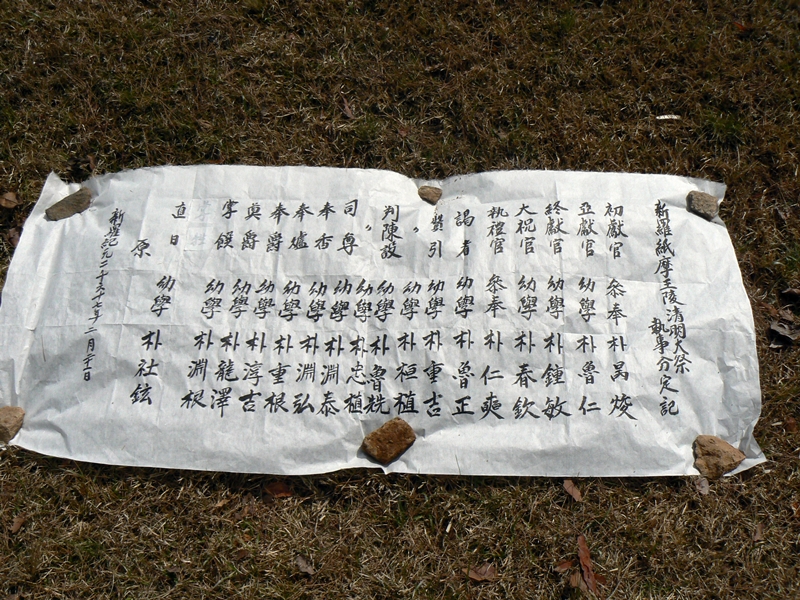 新羅紙摩王陵清明大祭
執事分定記
初獻官 叅奉 朴昌焌
亞獻官 幼學 朴魯仁
終獻官 幼學 朴鍾敏
大祝官 幼學 朴春欽
執禮官 叅奉 朴仁奭
謁者 幼學 朴魯正
贊引 幼學 朴重吉
判陳設 幼學 朴桓植
〃 幼學 朴魯兟
司尊 幼學 朴忠植
奉香 幼學 朴淵泰
奉爐 幼學 朴淵弘
奉爵 幼學 朴重根
奠爵 幼學 朴淳吉
掌饌 幼學 朴龍澤
直日 幼學 朴淵根
原 幼學 朴社鉉
新羅紀元二千六十七年 二月二十日